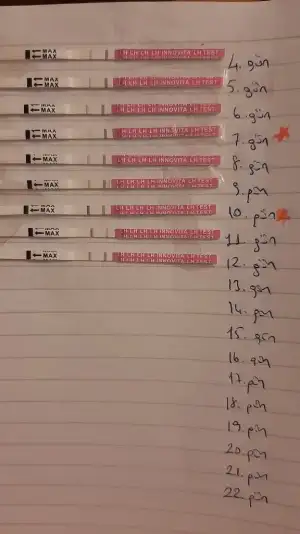 MAX LH LH LH INNOVITA LH TEST 4. gün
MAX LH LH LH INNOVITA LH TEST 5. gün
MAX LH LH LH INNOVITA LH TEST 6. gün
MAX LH LH LH INNOVITA LH TEST 7. gün
MAX LH LH LH INNOVITA LH TEST 8. gün
MAX LH LH LH INNOVITA LH TEST 9. gün
MAX LH LH LH INNOVITA LH TEST 10. gün
MAX LH LH LH INNOVITA LH TEST 11. gün
MAX LH LH LH INNOVITA LH TEST 12. gün
13. gün
14. gün
15. gün
16. gün
17. gün
18. gün
19. gün
20. gün
21. gün
22. gün